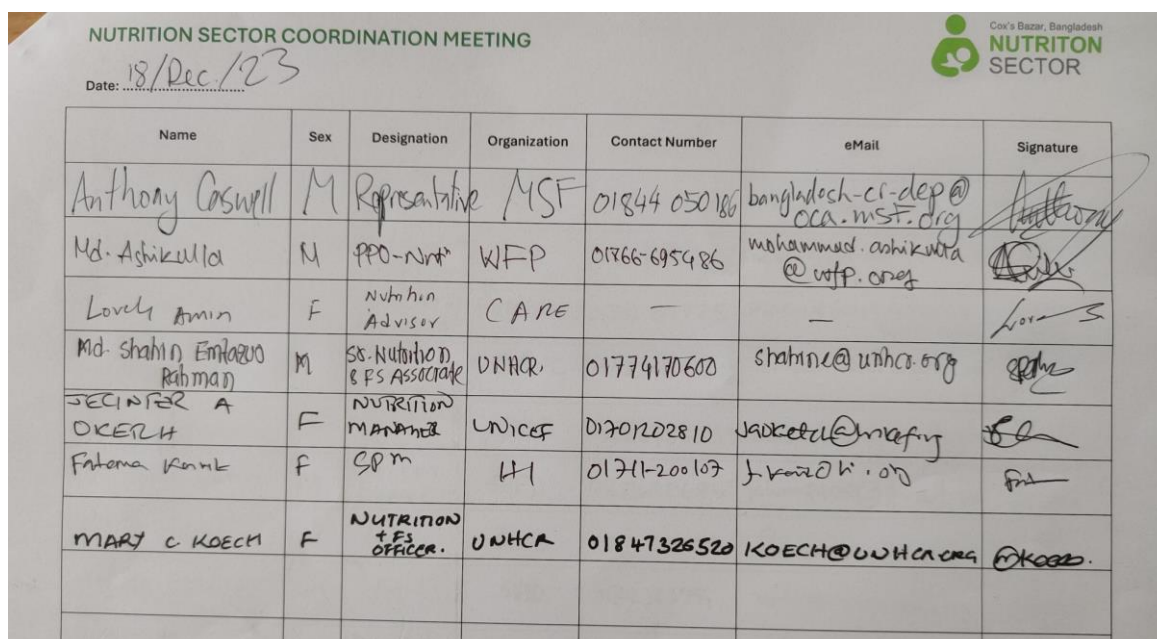 NUTRITION SECTOR COORDINATION MEETING
Cox's Bazar, Bangladesh
NUTRITON
SECTOR
Date: 18/Dec/23
Name Sex Designation Organization Contact Number eMail Signature
Anthony Caswell M Representative MSF 01844 050186 bangladesh-cr-dep@
oca.msf.org
Md. Ashikulla M PPO-Nutn WFP 01766-695486 mohammad.ashikulla
@wfp.org
Lovely Amin F Nutrition
Advisor CARE — —
Md. Shahin Rahman M Sr. Nutrition
& FS Associate UNHCR. 01774170600 shahine@unhcr.org
JECINTER A
OKECH F NUTRITION
MANAGER UNICEF 01701202810
Fatema F SPM HI 01711-200107
MARY C KOECH F NUTRITION
+ FS
OFFICER. UNHCR 01847326520 KOECH@UNHCR.ORG